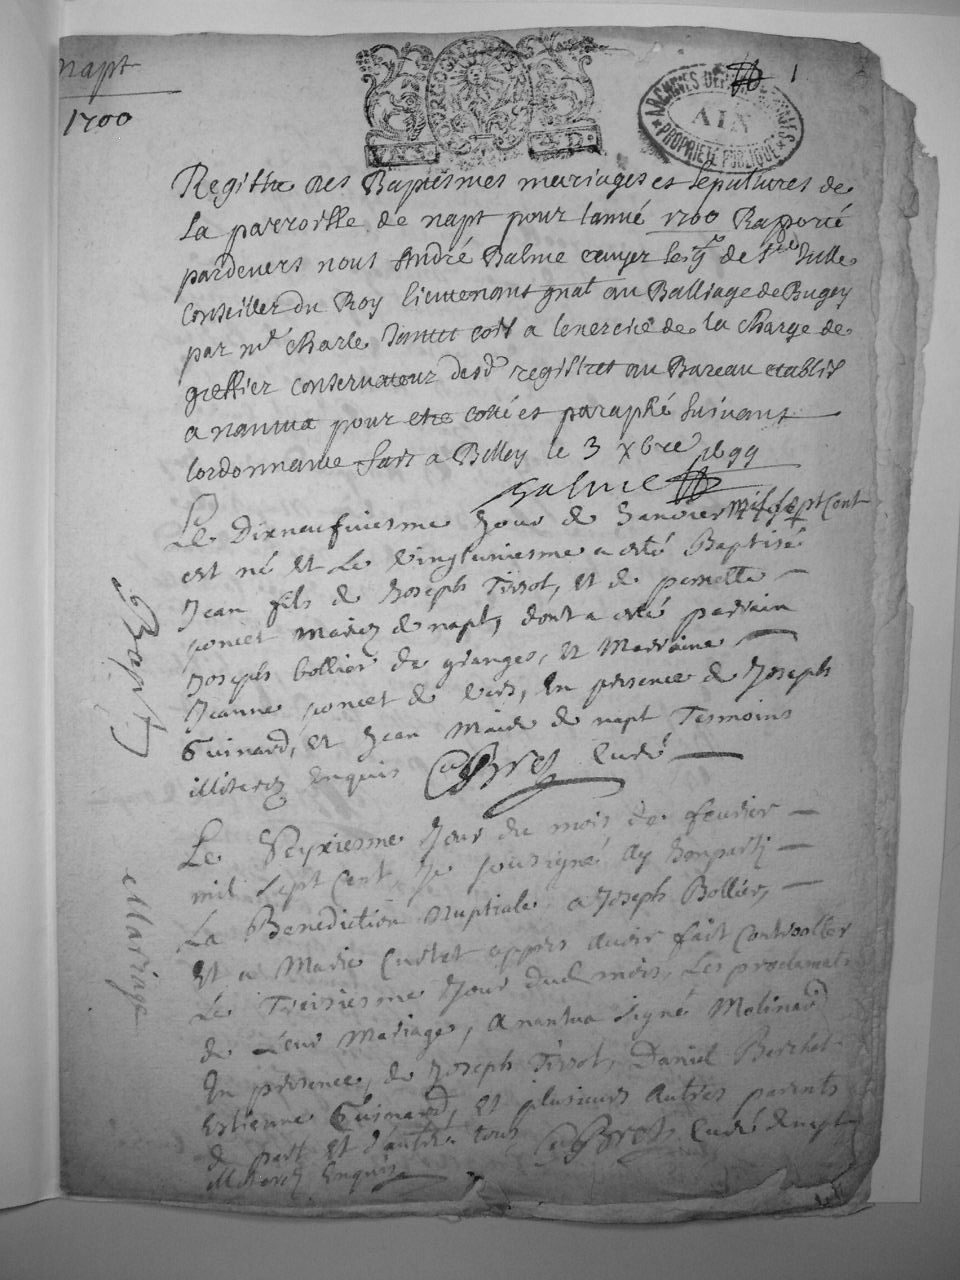 napt
1700
1
BOURGOGNE BR
ARCHIVES DE
AIN
PROPRIÉTÉ PUBLIQUE
Registre des Baptesmes mariages et sepultures de
La parroisse de napt pour lanné 1700 Rapporté
pardevers nous André Balme escuyer de Ste Julle
Conseiller du Roy lieutenant gnal au Balliage de Bugey
par mre Charle a lexercice de la charge de
greffier conservateur desd registres au Bareau establis
a nantua pour etre cotté et paraphé suivant
lordonnance fait a Belley le 3 xbre 1699
Balme
Le Dixneufviesme Jour de Janvier mil sept Cent
est né et Le vingtuniesme a esté Baptisé
Jean fils de Joseph Tissot, et de pernette
poncet Mariez de napt, dont a esté parrain
Joseph bollier de granges, et Marraine
Jeanne poncet de In presence de Joseph
Guinard, et Jean Maire de napt Tesmoins
illiterez Enquis Curé
Bapt
Le Seyxiesme Jour du mois de feuvrier
mil sept Cent Je soussigné Ay Imparti
La Benediction Nuptiale a Joseph Bollier,
Et a Marie Curtet appres avoir fait Controoller
Le Treisiesme Jour dud mois, Les proclamats
de Leur Mariage, A nantua signé Molinard
In presence, de Joseph Tissot, Daniel Berchet
Estienne Guinard, et plusieurs Autres parents
de part et d'autre tous Curé de napt
illiterez Enquis
Marriage